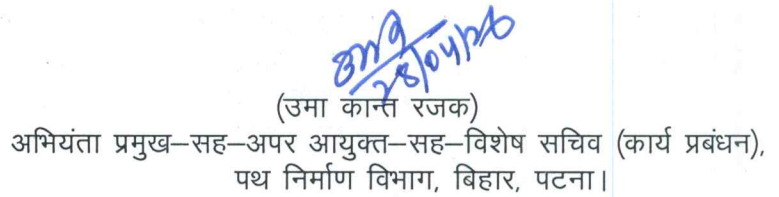 28/04/26
(उमा कान्त रजक)
अभियंता प्रमुख–सह–अपर आयुक्त–सह–विशेष सचिव (कार्य प्रबंधन),
पथ निर्माण विभाग, बिहार, पटना।